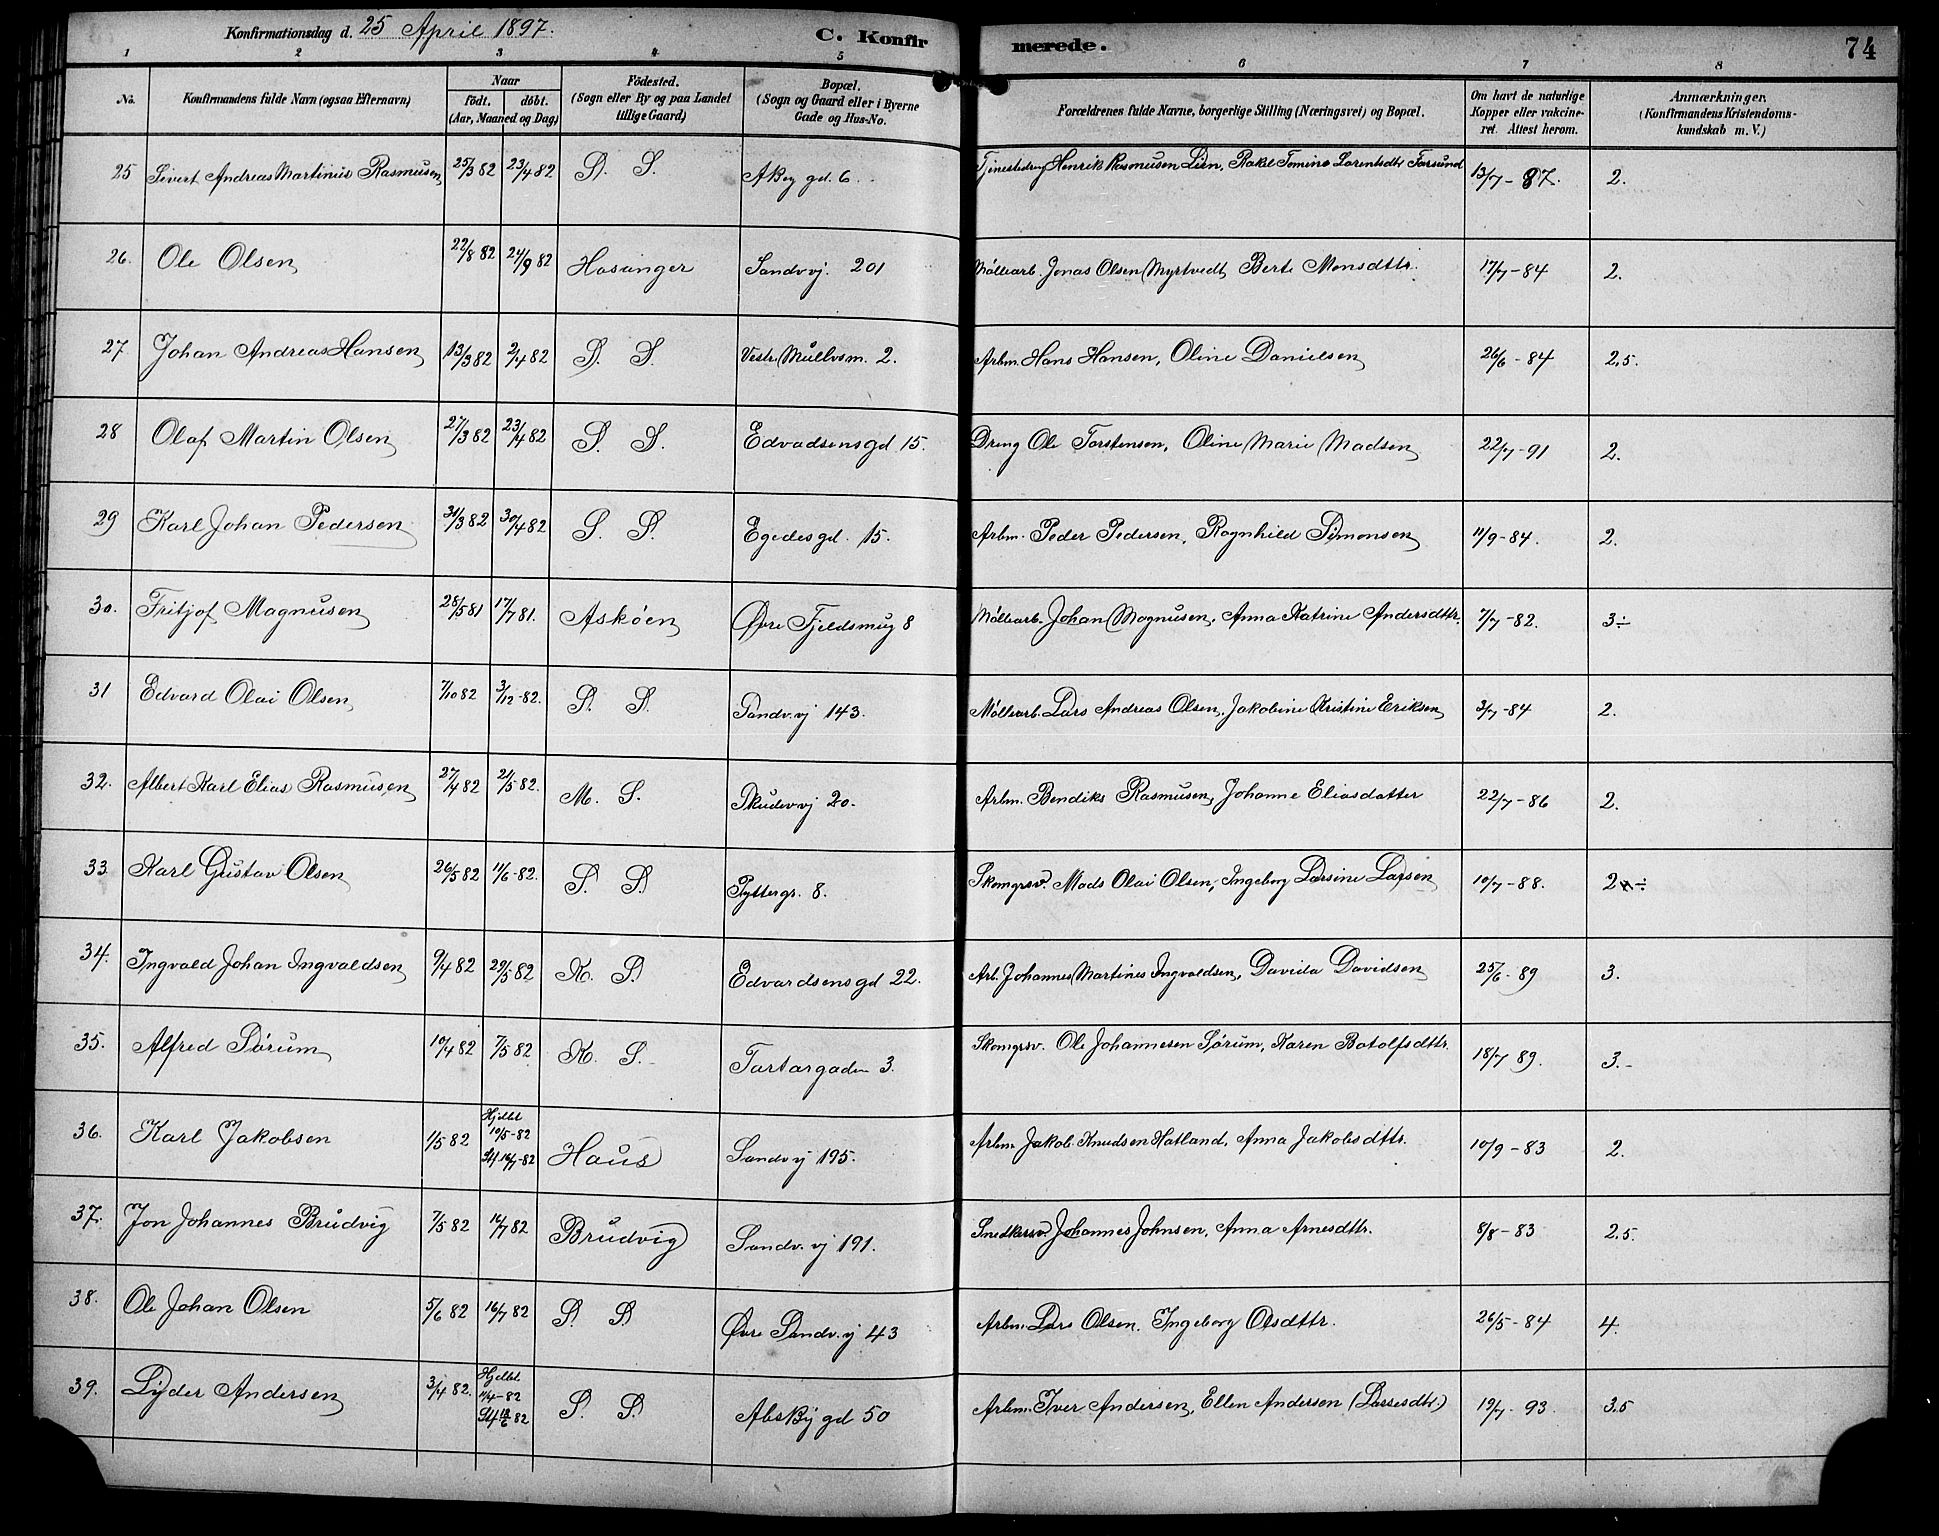 Konfirmationsdag d. 25 April 1897. C. Konfirmerede. 74
1 2 3 4 5 6 7 8
No. Konfirmandens fulde Navn (ogsaa Efternavn) Naar født. døbt. (Aar, Maaned og Dag) Fødested. (Sogn eller By og paa Landet tillige Gaard) Bopæl. (Sogn og Gaard eller i Byerne Gade og Hus-No. Forældrenes fulde Navne, borgerlige Stilling (Næringsvei) og Bopæl. Om havt de naturlige Kopper eller vakcineret. Attest herom. Anmærkninger. (Konfirmandens Kristendomskundskab m. V.)
25 Sivert Andreas Martinus Rasmusen 25/3 82 23/4 82 S. S. Aby gd 6. Tjenestedreng Henrik Rasmusen Lien, Rakel Tomine Larentsdtr Farsund 13/7-87. 2.
26. Ole Olsen 22/8 82 24/9 82 Hosanger Sandvvj. 201 Møllearb. Jonas Olsen Myrtvedt, Berte Monsdttr. 17/7-84 2.
27 Johan Andreas Hansen 13/3 82 2/4 82 S. S. Vestr. Mullvsm. 2. Arbm. Hans Hansen, Oline Danielsen 26/6-84 2,5.
28 Olaf Martin Olsen 27/3 82 23/4 82 S. S. Edvadsensgd 15. Dreng Ole Torstensen, Oline Marie Madsen 22/7-91 2.
29 Karl Johan Pedersen 31/3 82 30/4 82 S. S. Egedesgd. 15. Arbm. Peder Pedersen, Ragnhild Simonsen 11/9-84. 2.
30. Fritjof Magnusen 28/5 81 17/7 81. Askøen Øvre Fjeldsmug 8 Møllearb. Johan Magnusen, Anna Katrine Andersdttr. 7/7-82. 3÷
31 Edvard Olai Olsen 7/10 82 3/12-82. S. S. Sandv.vj 143. Møllearb. Lars Andreas Olsen, Jakobine Kristine Eriksen 3/7-84 2.
32. Albert Karl Elias Rasmusen 27/4 82 21/5 82. M. S. Skudevvj 20. Arbm. Bendiks Rasmusen, Johanne Eliasdatter 22/7-86 2.
33 Karl Gustav Olsen 26/5 82 11/6-82. S. S. Pyttergr. 8. Skomgrsv. Mads Olai Olsen, Ingeborg Larsine Larsen 10/7-88. 2÷
34. Ingvald Johan Ingvaldsen 9/4 82 29/5 82 K. S. Edvardsensgd 22. Arb. Johannes Martines Ingvaldsen, Davida Davidsen 25/6-89 3.
35. Alfred Sørum 10/4 82 7/5 82 K. S. Tartargaden 3. Skomgrsv. Ole Johannesen Sørum, Karen Botolfsdttr. 18/7 89. 3.-
36. Karl Jakobsen 1/5 82 Hjdbt 10/5-82 St 16/7-82 Haus Sandv.vj 195. Arbm. Jakob Knudsen Hatland, Anna Jakobsdttr. 10/9-83 2.
37. Jon Johannes Brudvig 7/5 82 16/7 82 Brudvig Sandv.vj 191. Snedkersv. Johannes Johnsen, Anna Arnesdttr. 8/8-83 2.5.
38. Ole Johan Olsen 5/6 82 16/7 82 S. S. Øvre Sandv.vj 43 Arbm. Lars Olsen. Ingeborg Olsdttr. 26/5-84 4.
39. Lyder Andersen 3/4 82. Hjdbt 11/4-82 St 18/6 82 S. S. Absbygd 50 Arbm. Iver Andersen, Ellen Andersen (Lassesdtr.) 19/7-93 3.5